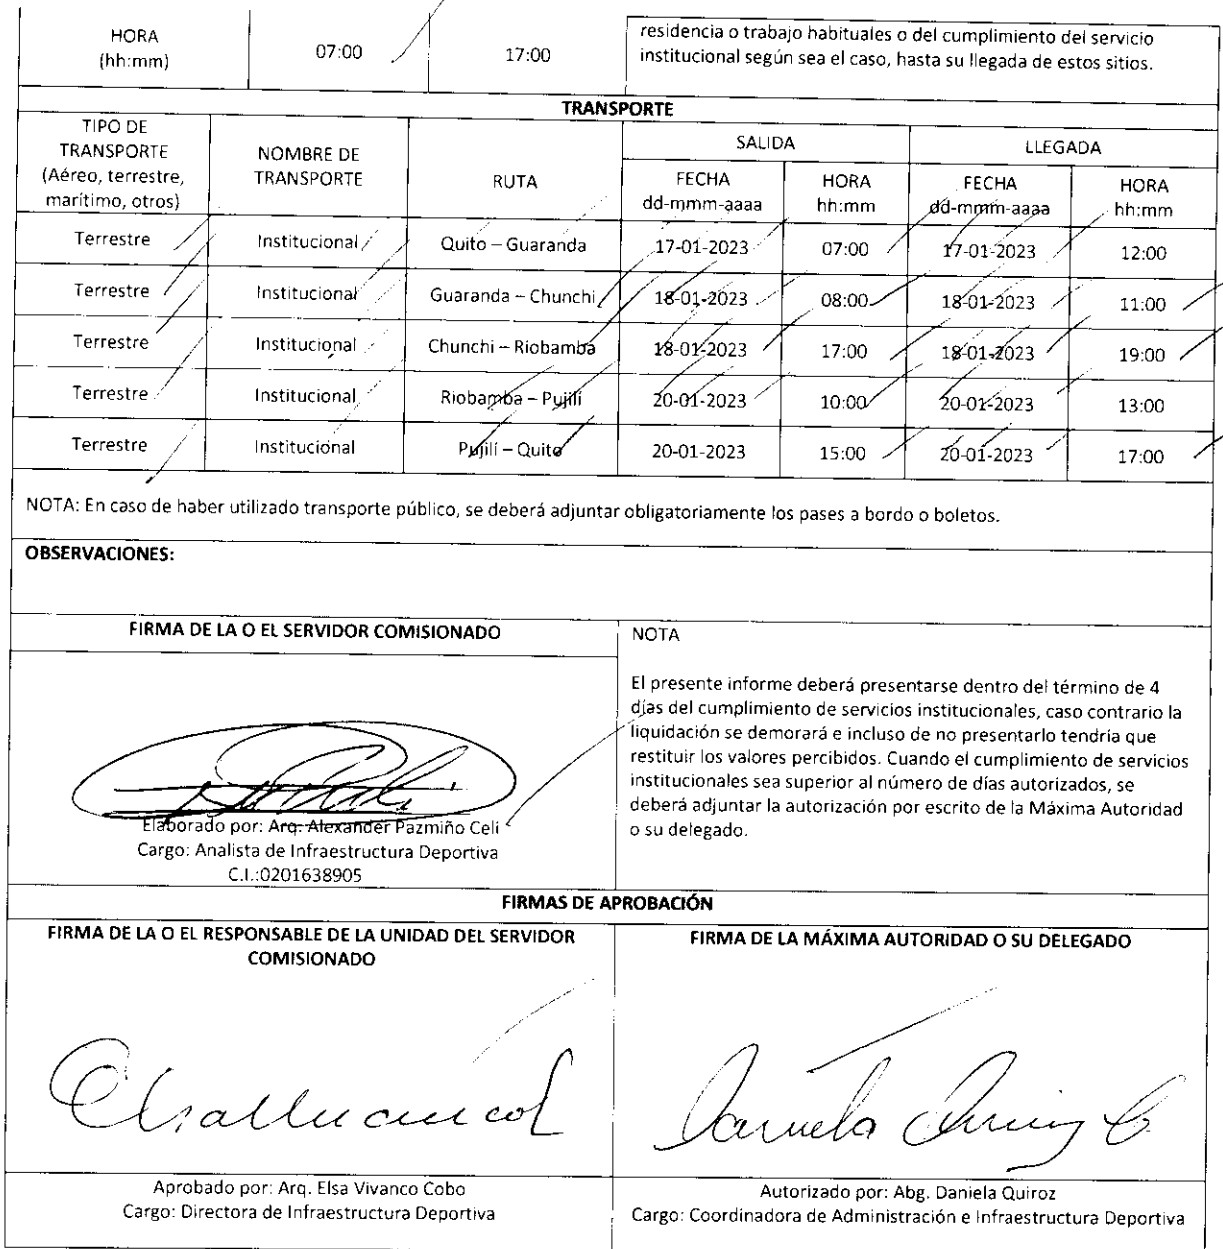 HORA
(hh:mm)
07:00
17:00
residencia o trabajo habituales o del cumplimiento del servicio
institucional según sea el caso, hasta su llegada de estos sitios.
TRANSPORTE
TIPO DE
TRANSPORTE
(Aéreo, terrestre,
marítimo, otros)
NOMBRE DE
TRANSPORTE
RUTA
SALIDA
LLEGADA
FECHA
dd-mmm-aaaa
HORA
hh:mm
FECHA
dd-mmm-aaaa
HORA
hh:mm
Terrestre Institucional Quito – Guaranda 17-01-2023 07:00 17-01-2023 12:00
Terrestre Institucional Guaranda – Chunchi 18-01-2023 08:00 18-01-2023 11:00
Terrestre Institucional Chunchi – Riobamba 18-01-2023 17:00 18-01-2023 19:00
Terrestre Institucional Riobamba – Pujilí 20-01-2023 10:00 20-01-2023 13:00
Terrestre Institucional Pujilí – Quito 20-01-2023 15:00 20-01-2023 17:00
NOTA: En caso de haber utilizado transporte público, se deberá adjuntar obligatoriamente los pases a bordo o boletos.
OBSERVACIONES:
FIRMA DE LA O EL SERVIDOR COMISIONADO
Elaborado por: Arq. Alexander Pazmiño Celi
Cargo: Analista de Infraestructura Deportiva
C.I.:0201638905
NOTA
El presente informe deberá presentarse dentro del término de 4
días del cumplimiento de servicios institucionales, caso contrario la
liquidación se demorará e incluso de no presentarlo tendría que
restituir los valores percibidos. Cuando el cumplimiento de servicios
institucionales sea superior al número de días autorizados, se
deberá adjuntar la autorización por escrito de la Máxima Autoridad
o su delegado.
FIRMAS DE APROBACIÓN
FIRMA DE LA O EL RESPONSABLE DE LA UNIDAD DEL SERVIDOR
COMISIONADO
FIRMA DE LA MÁXIMA AUTORIDAD O SU DELEGADO
Aprobado por: Arq. Elsa Vivanco Cobo
Cargo: Directora de Infraestructura Deportiva
Autorizado por: Abg. Daniela Quiroz
Cargo: Coordinadora de Administración e Infraestructura Deportiva